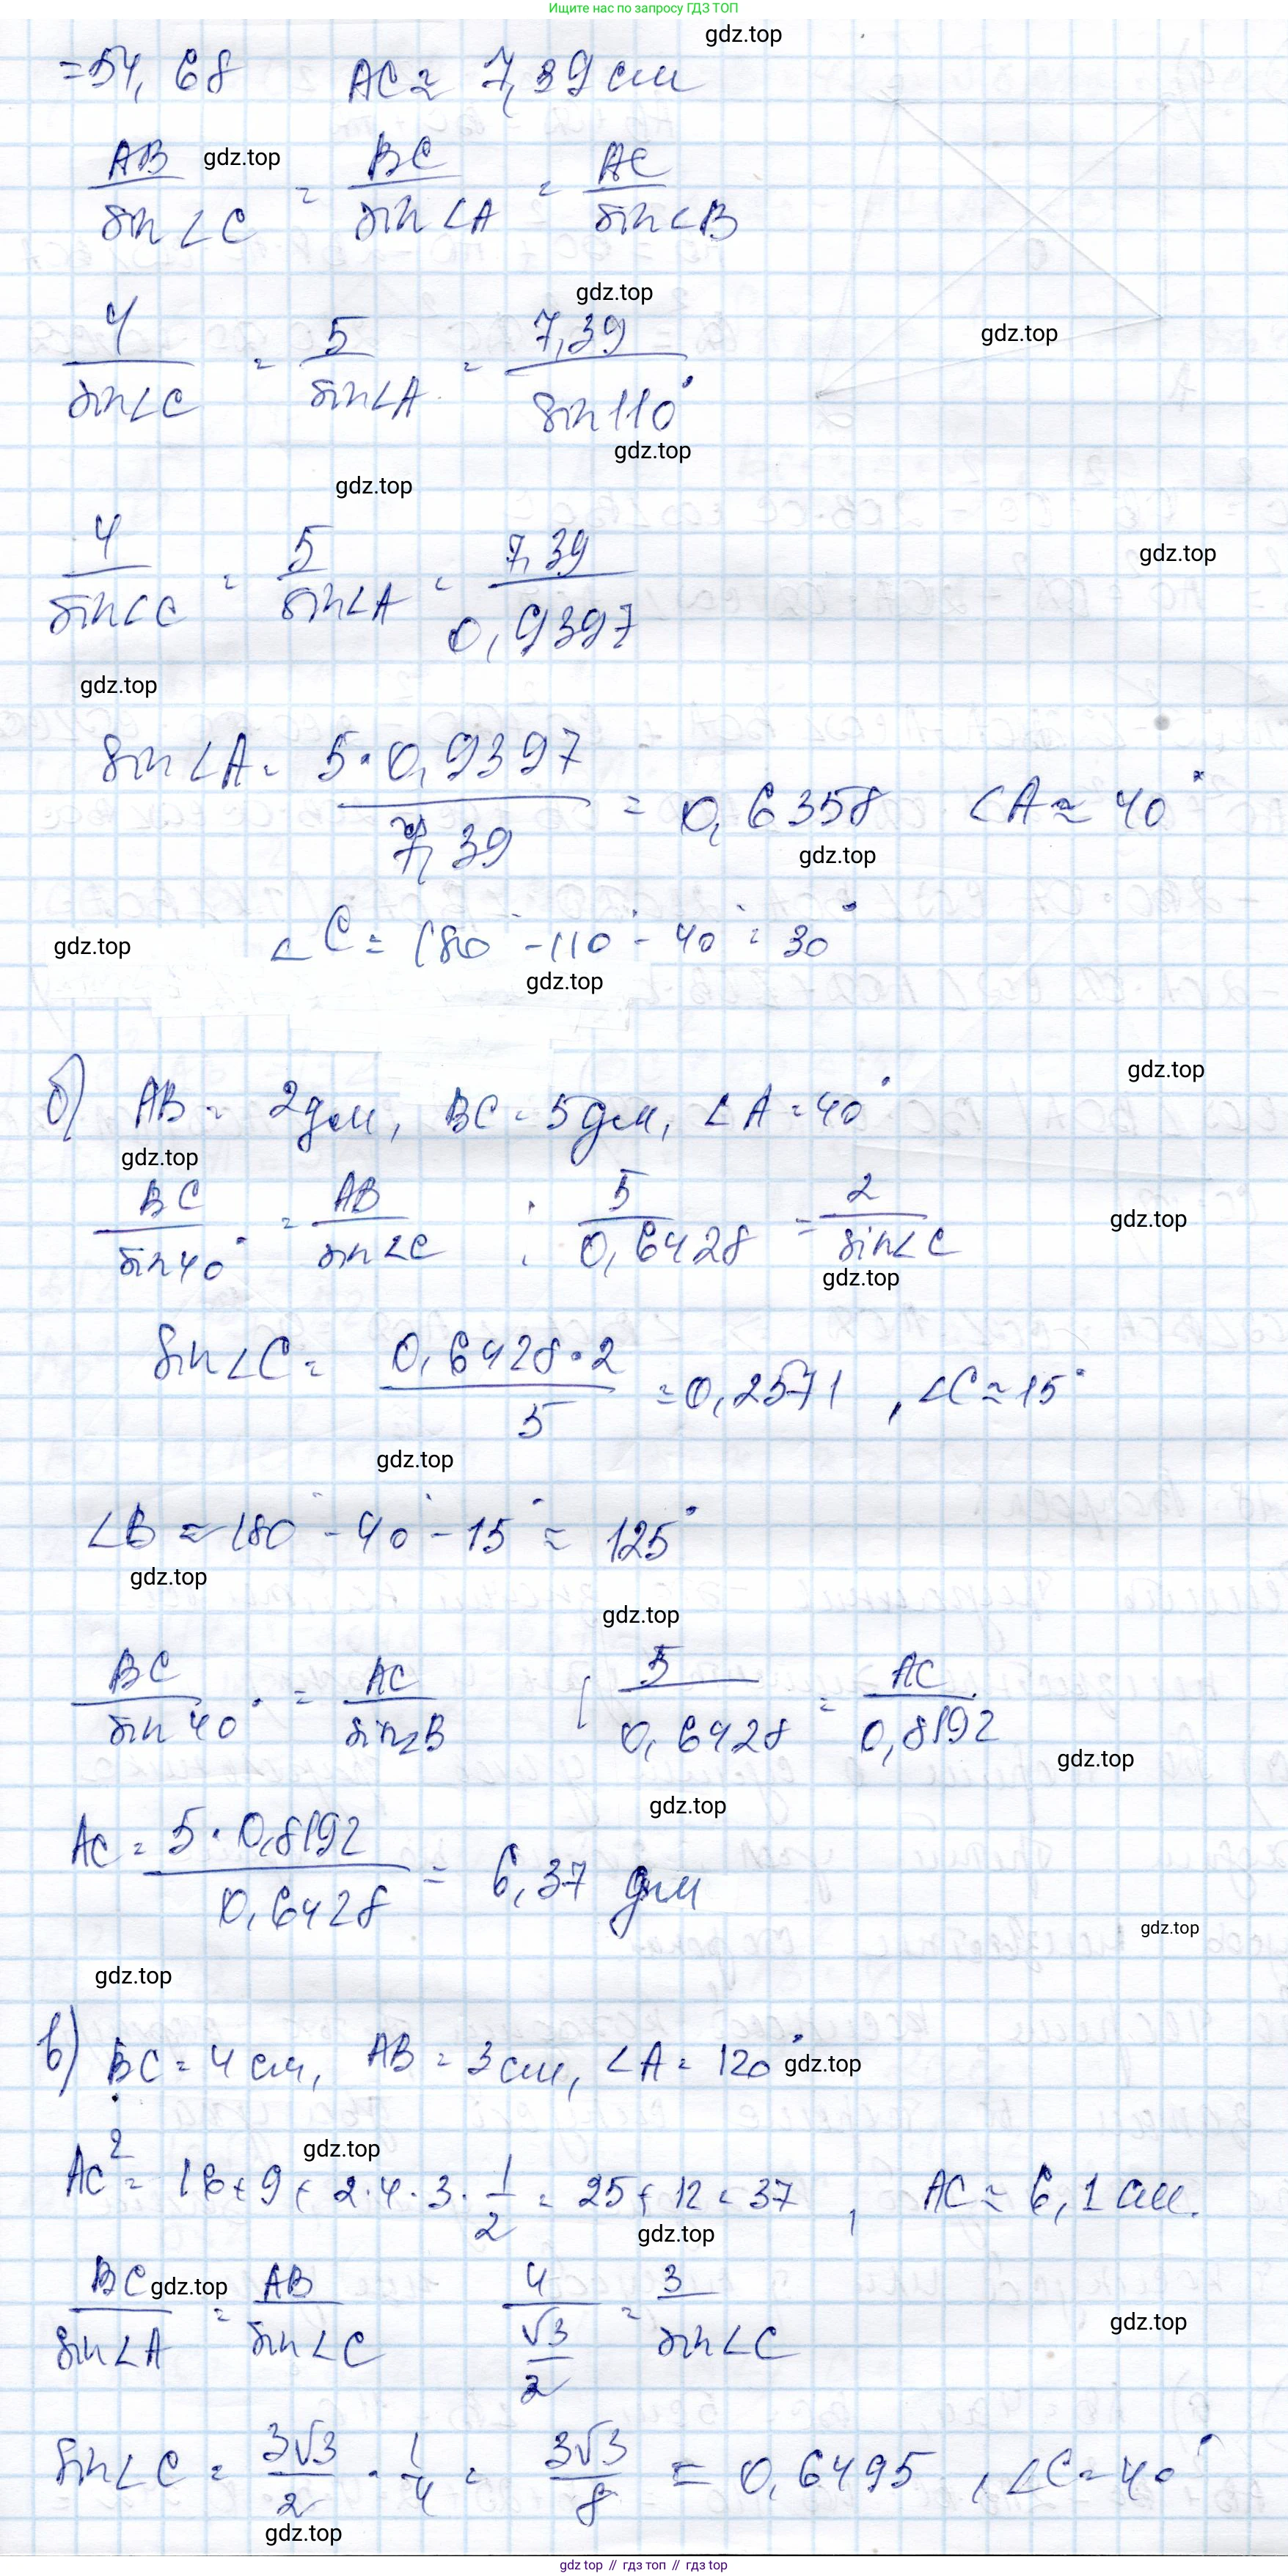 Ищите нас по запросу ГДЗ ТОП
gdz.top
=54,68 AC ≈ 7,39 см
AB/sin∠C = BC/sin∠A = AC/sin∠B
gdz.top
gdz.top
4/sin∠C = 5/sin∠A = 7,39/sin110°
gdz.top
gdz.top
gdz.top
4/sin∠C = 5/sin∠A = 7,39/0,9397
gdz.top
gdz.top
sin∠A = 5·0,9397/7,39 = 0,6358 ∠A ≈ 40°
gdz.top
∠C = 180°-110°-40° = 30°
gdz.top
gdz.top
gdz.top
б) AB = 2дм, BC = 5дм, ∠A = 40°
gdz.top
BC/sin40° = AB/sin∠C ; 5/0,6428 = 2/sin∠C
gdz.top
gdz.top
sin∠C = 0,6428·2/5 = 0,2571 , ∠C ≈ 15°
gdz.top
∠B ≈ 180°-40°-15° ≈ 125°
gdz.top
gdz.top
BC/sin40° = AC/sin∠B ; 5/0,6428 = AC/0,8192
gdz.top
gdz.top
AC = 5·0,8192/0,6428 = 6,37 дм
gdz.top
gdz.top
в) BC = 4 см, AB = 3 см, ∠A = 120°
gdz.top
gdz.top
AC² = 16+9+2·4·3·1/2 = 25+12 = 37 , AC ≈ 6,1 см.
gdz.top
BC/sin∠A = AB/sin∠C 4/(√3/2) = 3/sin∠C
gdz.top
gdz.top
sin∠C = 3√3/2 · 1/4 = 3√3/8 = 0,6495 , ∠C ≈ 40°
gdz.top
gdz top // гдз топ // гдз top